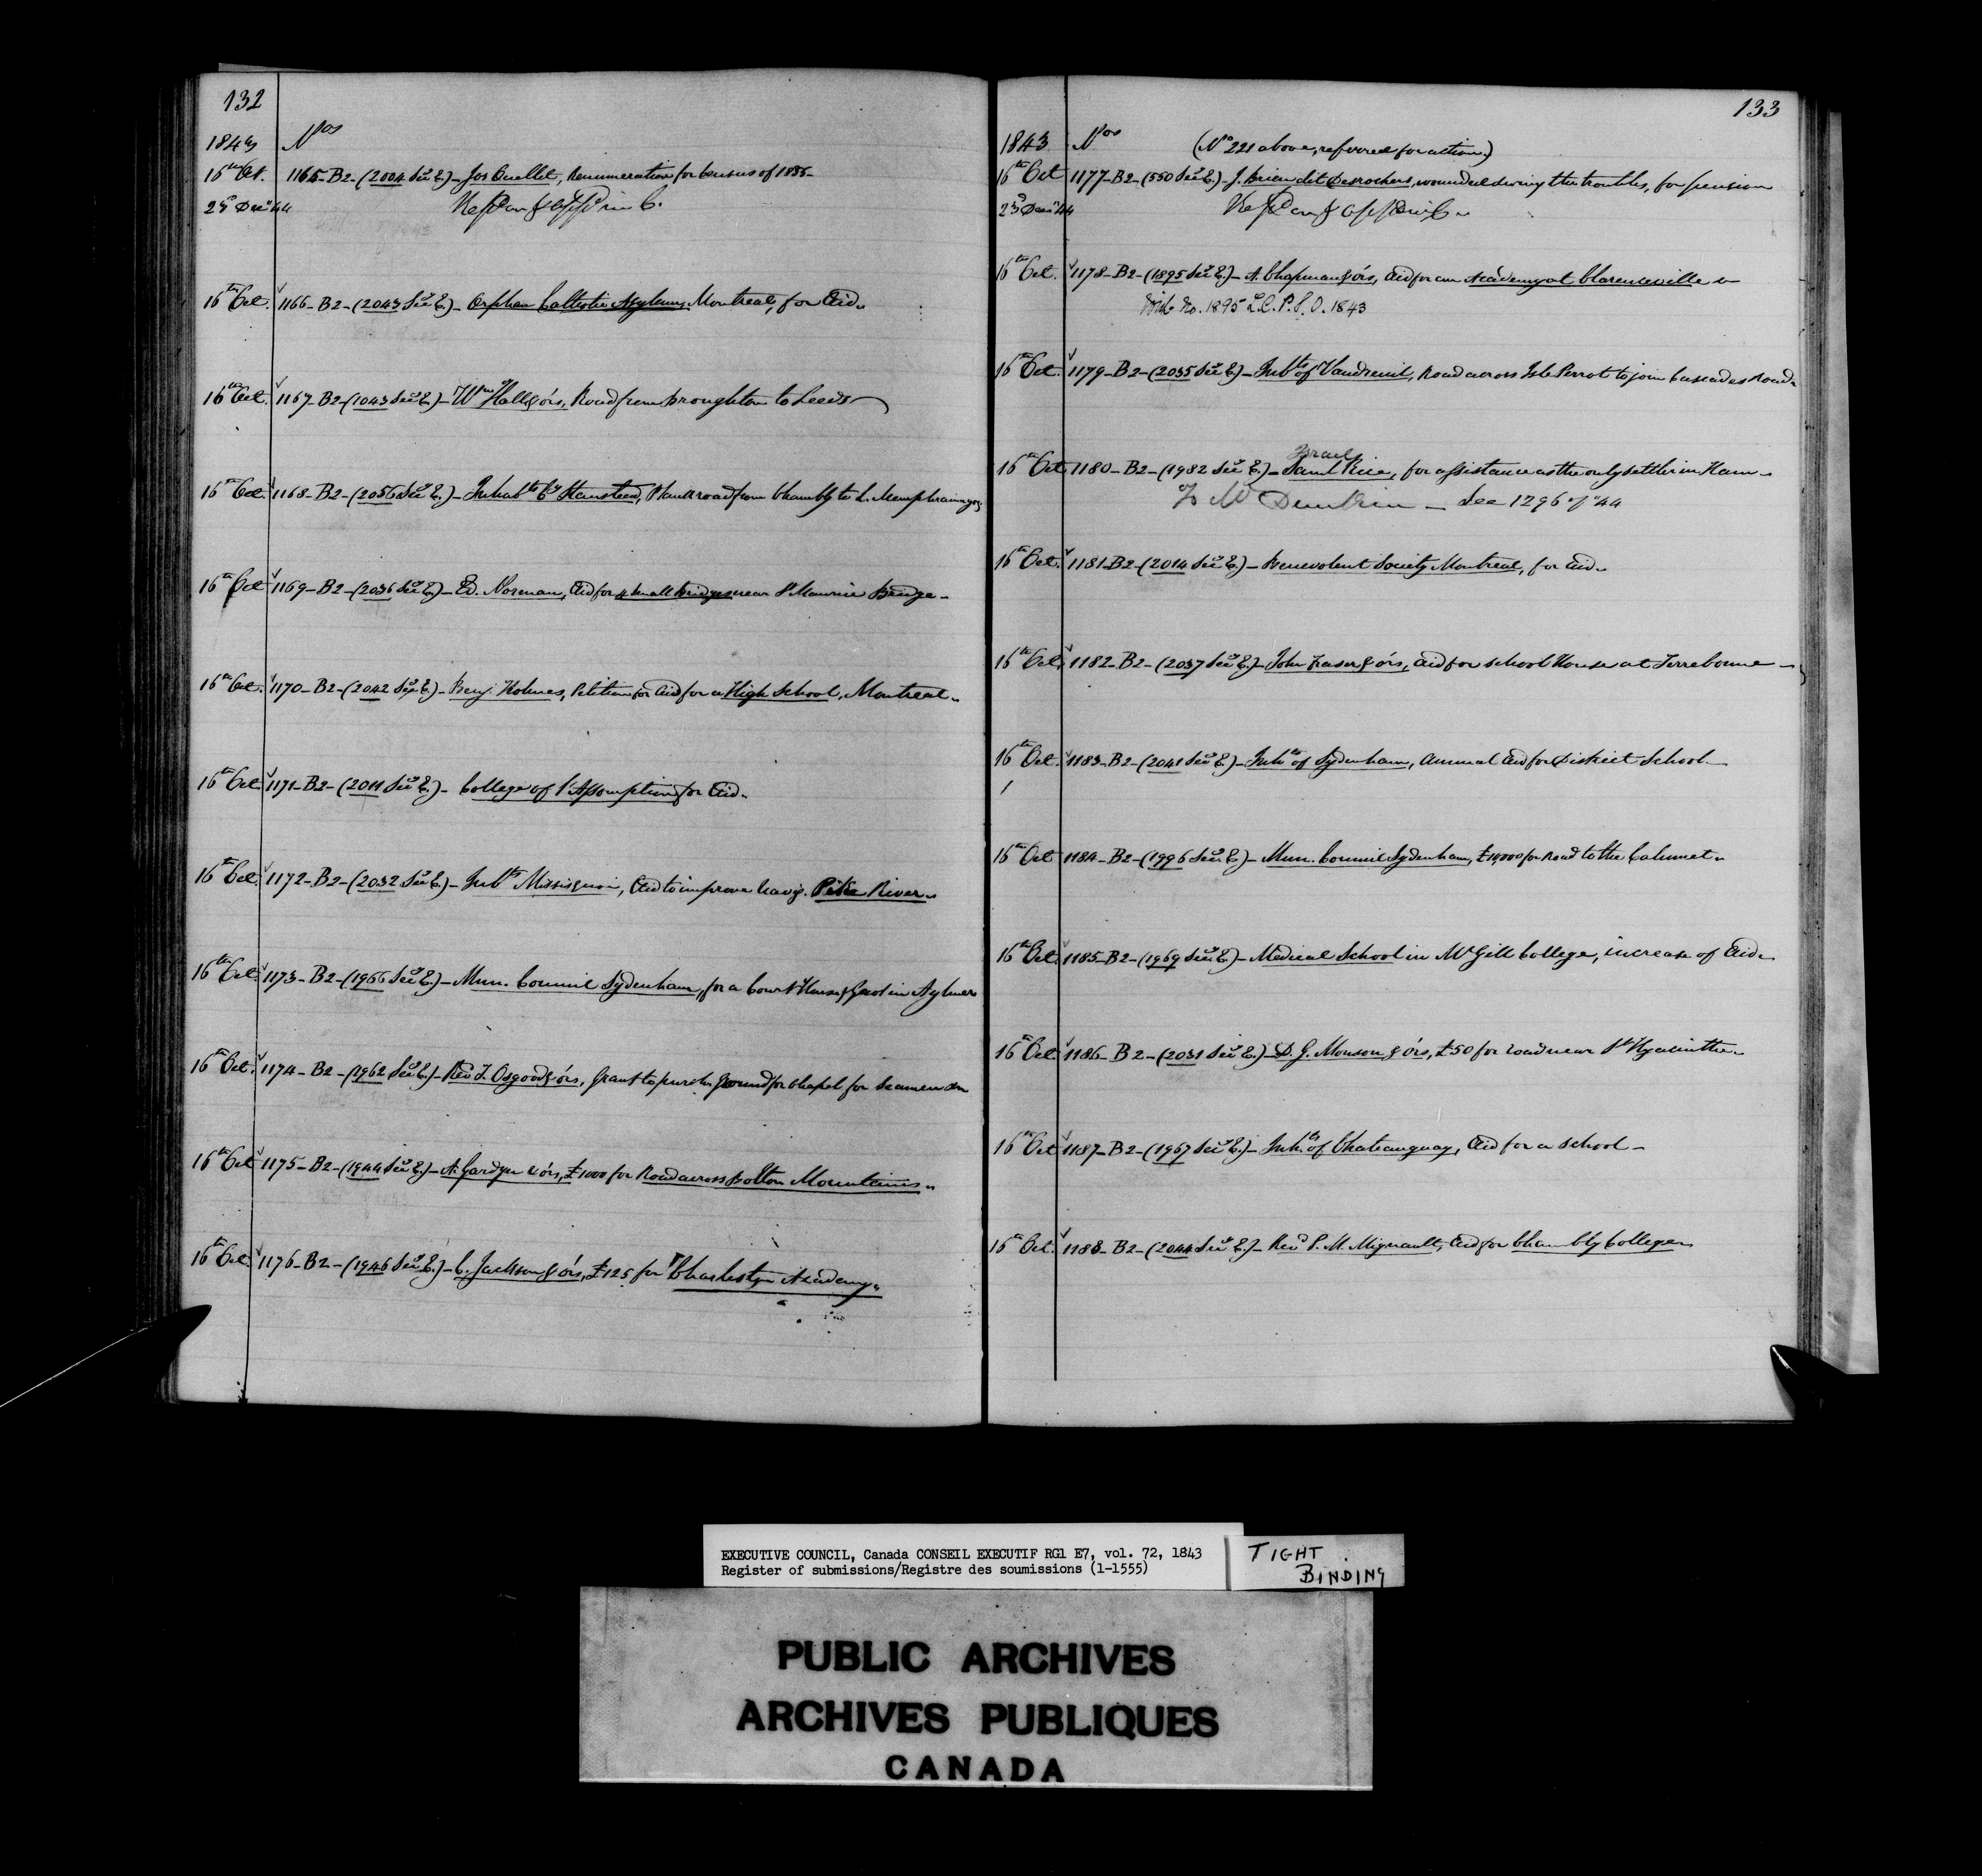 132
1843 Nos
16th Oct. 1165-B2-(2004 Sec E.)-Jos Ouellet, Renumeration for Census of 1835-
23d Decr 44
16th Oct. 1166-B2-(2043 Sec E.)-Orphan Catholic Asylum, Montreal, for Aid.
16th Oct. 1167-B2-(1043 Sec E.)-Wm Hall & ors, Road from Broughton to Leeds
16th Oct. 1168-B2-(2056 Sec E.)-Inhabts Cy Stanstead, Plank road from Chambly to L. Memphramagog
16th Oct 1169-B2-(2036 Sec E.)-Ed. Norman, Aid for 4 small Bridges near St Maurice Bridge-
16th Oct. 1170-B2-(2042 Sec E.)-Benj. Holmes, Petition for Aid for a High School, Montreal.
16th Oct. 1171-B2-(2011 Sec E.)-College of l'Assomption for Aid.
16th Oct. 1172-B2-(2032 Sec E.)-Inbts Missisquoi, Aid to improve Navig. Pike River.
16th Oct. 1173-B2-(1966 Sec E.)-Mun. Council Sydenham, for a Court House & Gaol in Aylmer
16th Oct. 1174-B2-(1962 Sec E.)-Revd T. Osgood & ors, Grant to purch. ground for chapel for Seamen &c
16th Oct 1175-B2-(1944 Sec E.)-A. Gardyn & ors, £1000 for Road across Bolton Mountains.
16th Oct 1176-B2-(1946 Sec E.)-C. Jackson & ors, £125 for Charleston Academy.
133
1843 Nos (No 221 above, referred for action)
16th Oct 1177-B2-(550 Sec E.)-J. Brien dit Desrochers, wounded during the troubles, for pension
23d Decr 44
16th Oct. 1178-B2-(1895 Sec E.)-A. Chapman & ors, Aid for an Academy at Clarenceville
With No. 1895 L.C.P.S.O. 1843
16th Oct. 1179-B2-(2035 Sec E.)-Inbts of Vaudreuil, Road across Isle Perrot to join Cascades Road.
Israel
16th Oct 1180-B2-(1982 Sec E.)-Saml Rice, for assistance as the only settler in Ham-
To Mr Dunkin - See 1296 of "44
16th Oct. 1181-B2-(2014 Sec E.)-Benevolent Society Montreal, for Aid.
16th Oct. 1182-B2-(2037 Sec E.)-John Fraser & ors, Aid for School House at Terrebonne-
16th Oct. 1183-B2-(2041 Sec E.)-Inhts of Sydenham, Annual Aid for District School-
16th Oct 1184-B2-(1996 Sec E.)-Mun. Council Sydenham, for Road to the Calumet.
16th Oct. 1185-B2-(1969 Sec E.)-Medical School in McGill College, increase of Aid.
16th Oct. 1186-B2-(2031 Sec E.)-D. G. Monson & ors, £50 for road near St Hyacinthe.
16th Oct 1187-B2-(1967 Sec E.)-Inhts of Chateauguay, Aid for a School-
16th Oct. 1188-B2-(2044 Sec E.)-Revd P. M. Mignault, Aid for Chambly College
EXECUTIVE COUNCIL, Canada CONSEIL EXECUTIF RG1 E7, vol. 72, 1843
Register of submissions/Registre des soumissions (1-1555)
TIGHT
BINDING
PUBLIC ARCHIVES
ARCHIVES PUBLIQUES
CANADA